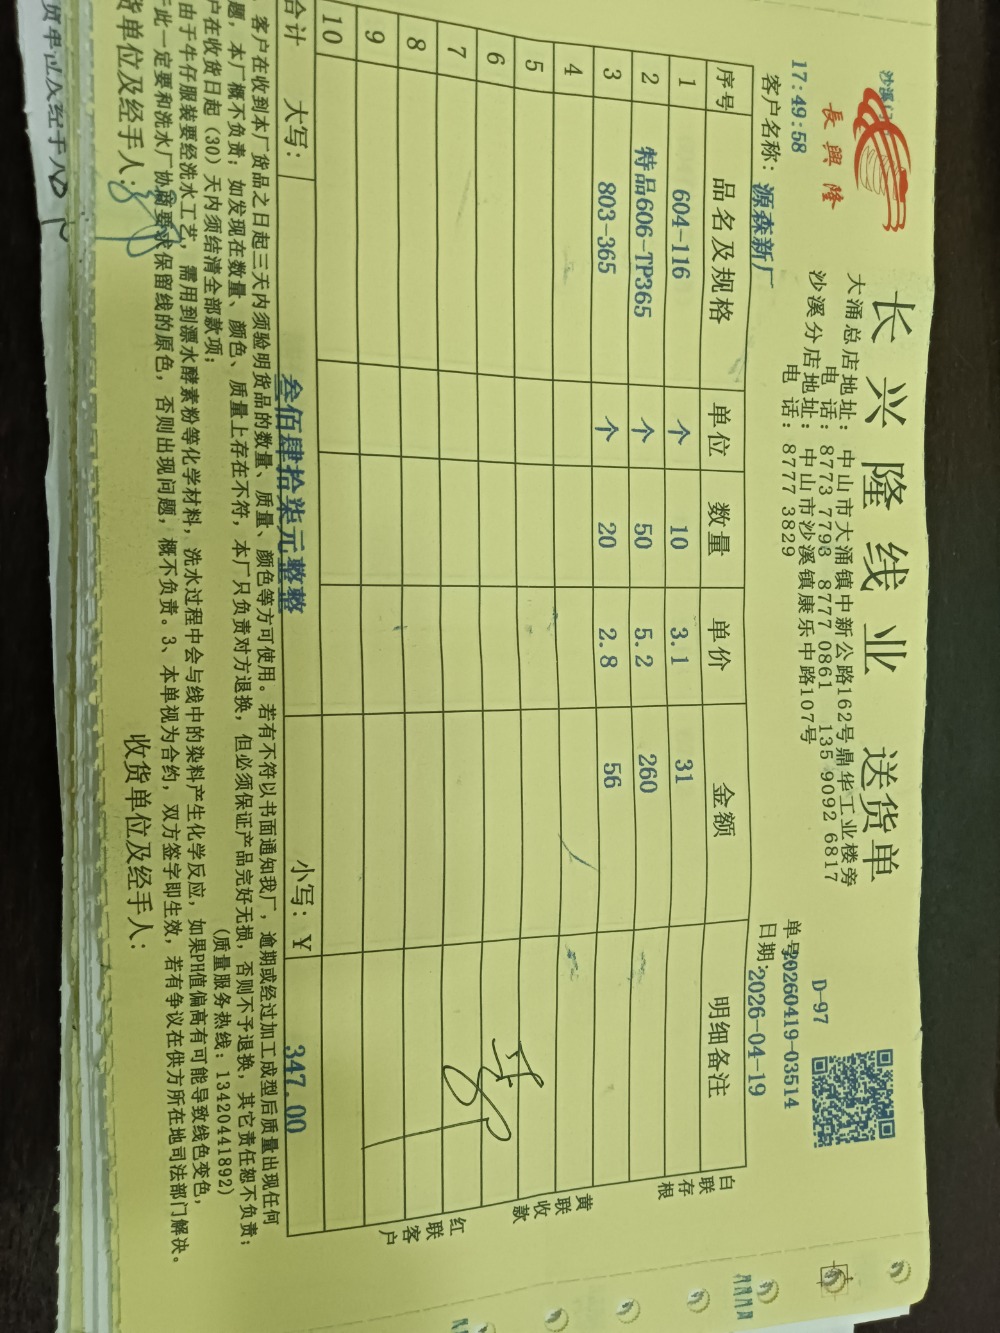 長興隆
长兴隆线业 送货单
大涌总店地址: 中山市大涌镇中新公路162号鼎华工业楼旁
电 话: 8773 7793 8777 0861 135 9092 6817
沙溪分店地址: 中山市沙溪镇康乐中路107号
电 话: 8777 3829
D-97
17:49:58
单号:20260419-03514
客户名称: 源森新厂
日期: 2026-04-19
序号 品名及规格 单位 数量 单价 金额 明细备注
1 604-116 个 10 3.1 31
2 特品606-TP365 个 50 5.2 260
3 803-365 个 20 2.8 56
4
5
6
7
8
9
10
合计 大写: 叁佰肆拾柒元整整 小写: ¥ 347.00
白联存根
黄联收款
红联客户
客户在收到本厂货品之日起三天内须验明货品的数量、质量、颜色等方可使用。若有不符以书面通知我厂, 逾期或经过加工成型后质量出现任何
题, 本厂概不负责; 如发现在数量、颜色、质量上存在不符, 本厂只负责对方退换, 但必须保证产品完好无损, 否则不予退换, 其它责任恕不负责;
户在收货日起 (30) 天内须结清全部款项;
(质量服务热线: 13420441892)
由于牛仔服装要经洗水工艺, 需用到漂水酵素粉等化学材料, 洗水过程中会与线中的染料产生化学反应, 如果PH值偏高有可能导致线色变色,
此一定要和洗水厂协商要求保留线的原色, 否则出现问题, 概不负责。3、本单视为合约, 双方签字即生效, 若有争议在供方所在地司法部门解决。
货单位及经手人:
收货单位及经手人: